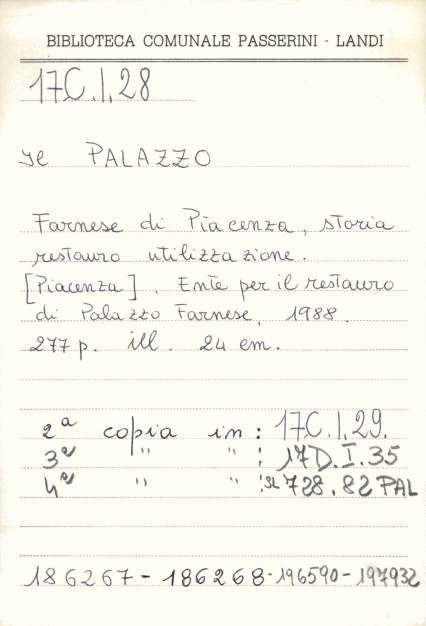 BIBLIOTECA COMUNALE PASSERINI - LANDI
17C.I.28
Il PALAZZO
Farnese di Piacenza, storia
restauro utilizzazione.
[Piacenza], Ente per il restauro
di Palazzo Farnese, 1988.
277 p. ill. 24 cm.
2a copia in: 17C.I.29.
3a " " : 17D.I.35
4a " " : SL 728.82 PAL
186267 - 186268 - 196590 - 197932